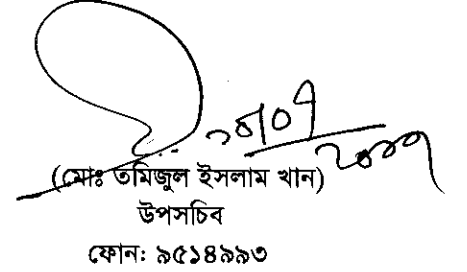 (মোঃ তমিজুল ইসলাম খান)
উপসচিব
ফোন: ৯৫১৪৯৯৩